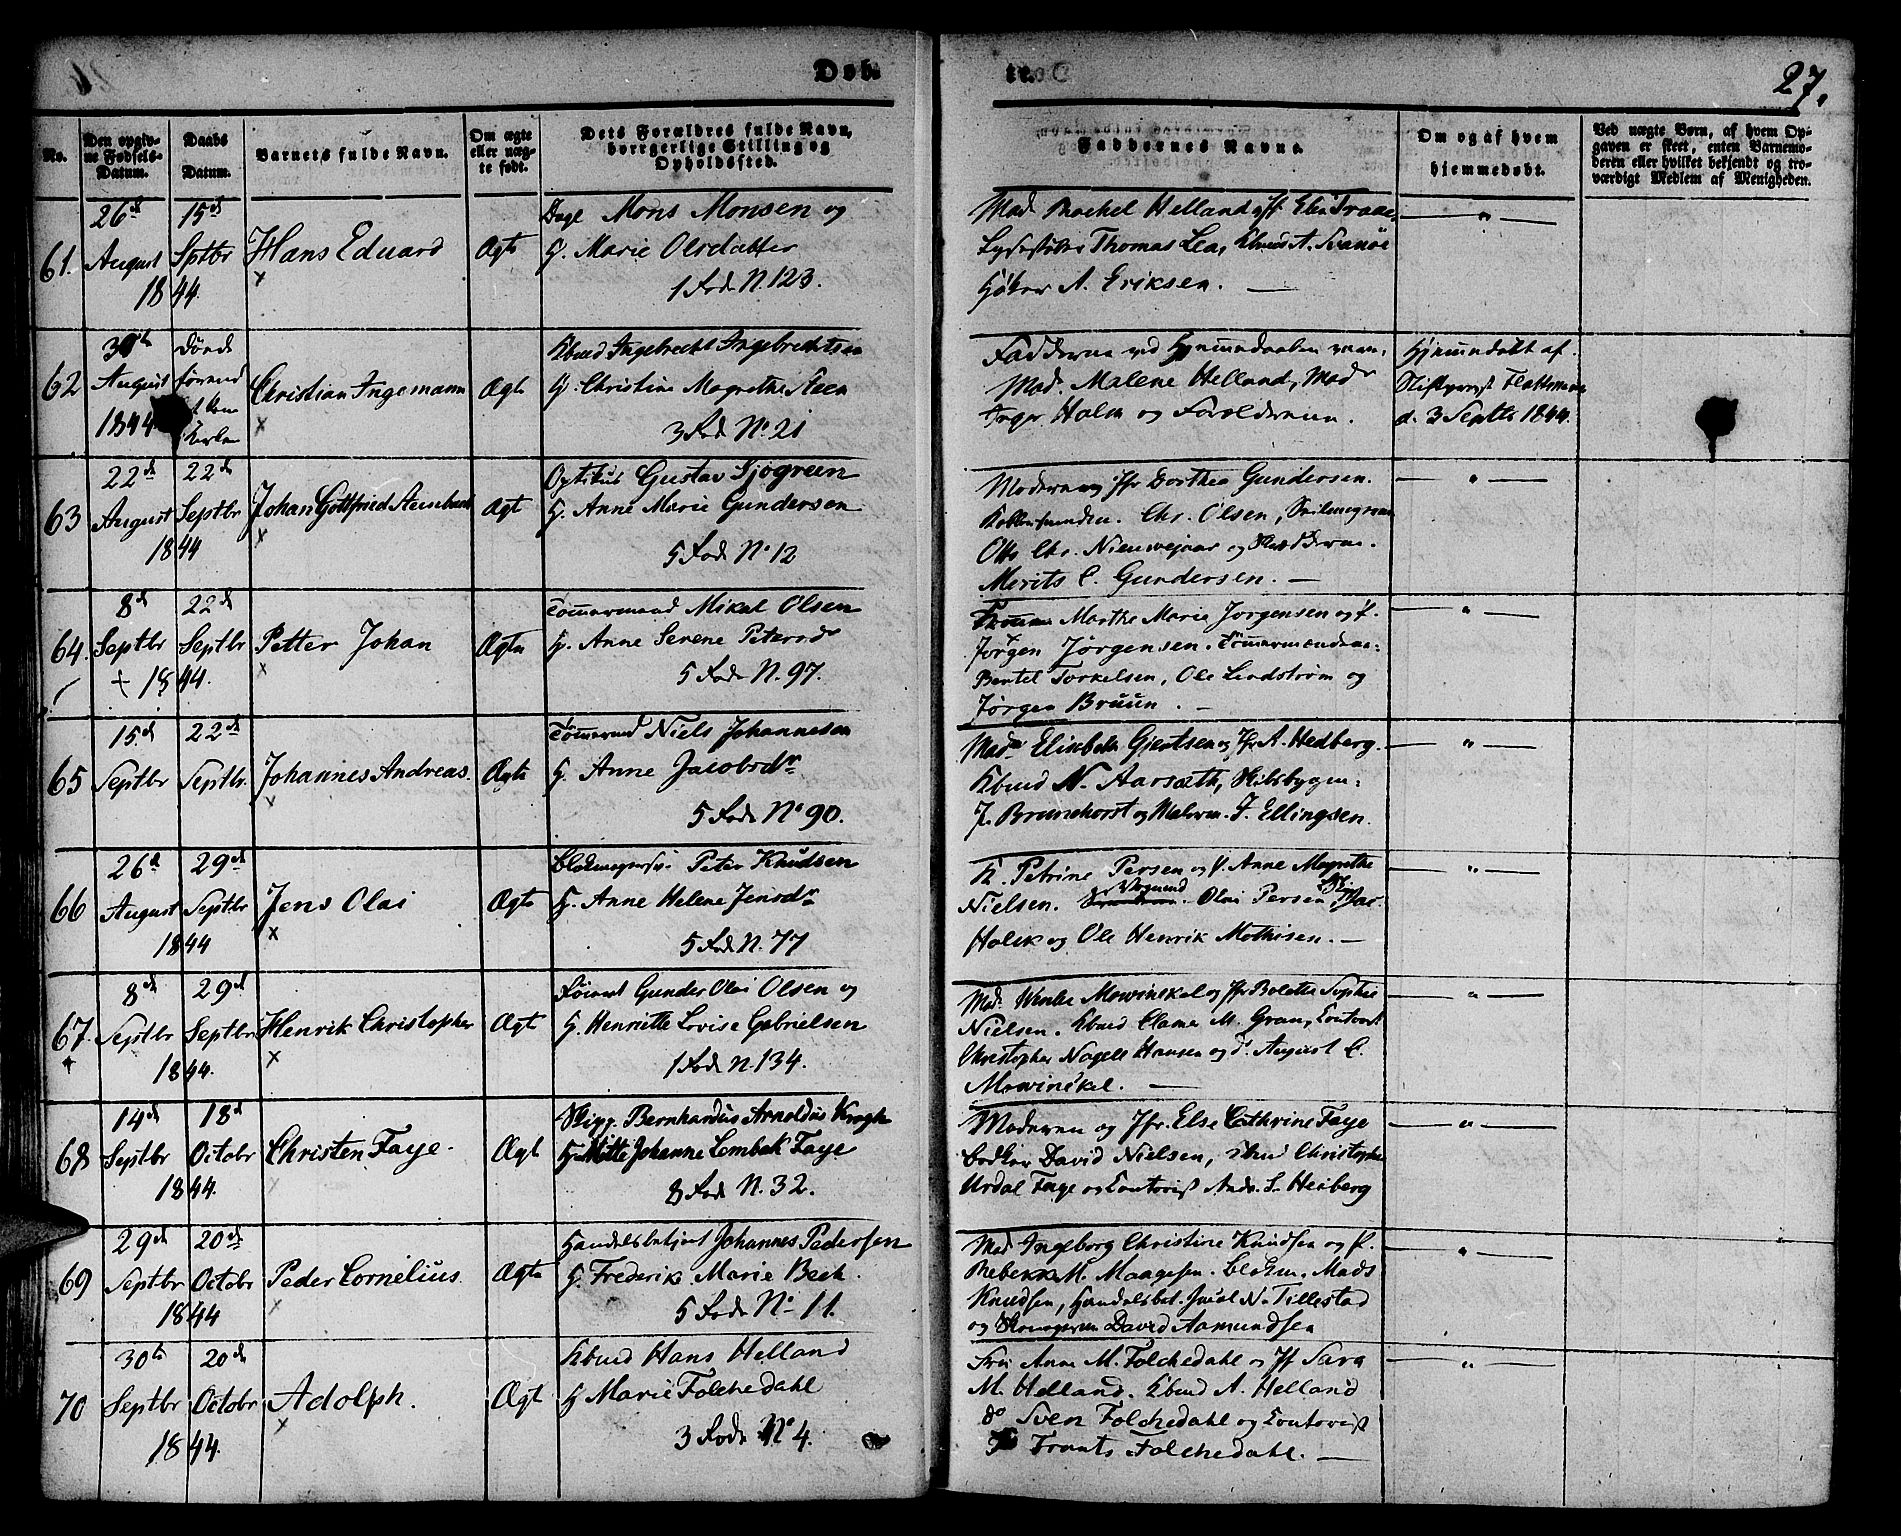 Døb-
te.
27.
No.
Den opgivne Fødsels-Datum.
Daabs Datum.
Barnets fulde Navn.
Om ægte eller uægte født.
Dets Forældres fulde Navn, borgerlige Stilling og Opholdssted.
Faddernes Navne.
Om og af hvem hjemmedøbt.
Ved uægte Børn, af hvem Opgaven er skeet, enten Barnemoderen eller hvilket bekjendt og troværdigt Medlem af Menigheden.
61. 26d August 15d Septbr 1844 Hans Eduard Ægte
Mons Monsen og
H. Marie Olsdatter
1 Rode N. 123.
Mad. Rachel Helland, Jf. Elen
Thomas Lea, A. Svanøe
A. Eriksen. —
62 August 1844 Christian Ingemann Ægte
Kbmd Ingebrecht Ingebrechtsen
H. Christine Magrethe Steen
3 Rode No. 21
Fadderne ved Hjemmedaaben vare,
Mad. Malene Helland, Madr
Inger Holm og Forældrene.
Hjemmedøbt af
d. 3 Septbr 1844.
63 22d August 22d Septbr 1844 Johan Gottfried Ægt
Optikus Gustav Sjøgreen
H. Anne Marie Gundersen
5 Rode No 12
Moderen og Jfr Dorthea Gundersen.
Chr. Olsen,
Otto Chr. og
Merits C. Gundersen. —
64. 8d Septbr 22d Septbr + 1844. Petter Johan Ægte
Tømmermand Mikal Olsen
H. Anne Serene Petersdr
5 Rode N. 97.
Marthe Marie Jørgensen og P.
Jørgen Jørgensen. Tømmermændene
Bentel Torkelsen, Ole Lindstrøm og
Jørgen Bruun. —
65 15d Septbr 22d Septbr. Johannes Andreas. Ægte
Tømmermd Niels Johannesen
H. Anne Jacobsdr
5 Rode No 90.
Madm Elisabeth Gjertsen og Jfr A. Hedberg.
Kbmd N. Aarsæth, Skibsbygm:
J. Brunchorst og J. Ellingsen
66 26d August 29d Septbr 1844 Jens Olai Ægte
Peter Knudsen
H. Anne Helene Jensdr
5 Rode N. 77
K. Petrine Persen og P. Anne Magrethe
Nielsen. Vognmd Olai Persen
og Ole Henrik Mathisen. —
67. 8d Septbr 29d Septbr 1844. Henrik Christopher Ægt
Gunder Olai Olsen og
H. Henriette Lovise Gabrielsen
1 Rode N. 134.
Mad. Wenke Mowinckel og Jfr Bolette Sophie
Nielsen. Kbmd Clamer M. Gran, Contorist
Christopher Nagell Hansen og do August C.
Mowinckel. —
68 14d Septbr 18d Octobr 1844. Christen Faye. Ægt
Skipp. Bernhardus Arnoldus Krogh
H. Mitte Johanne Lembak Faye
8 Rode N. 32.
Moderen og Jfr. Else Cathrine Faye
Bødker David Nielsen, Kbmd Christopher
Urdal Faye og Contorist Andr. S. Heiberg
69 29d Septbr 20d Octobr 1844 Peder Cornelius. Ægte
Handelsbetjent Johannes Pedersen
H. Frederike Marie Bech.
5 Rode No 11.
Mad Ingeborg Christine Knudsen og P.
Rebekka M. Maagesen. Mads
Knudsen, Handelsbet. Jacob N. Tillestad
og David Aamundsen
70 30te Septbr 20d Octobr 1844. Adolph. Ægt
Kbmd Hans Helland
H. Marie Folchedahl
3 Rode No 4.
Fru Anne M. Folchedahl og Jf Sara
M. Helland. Kbmd A. Helland
do Sven Folchedahl og Contorist
Frants Folchedahl. —